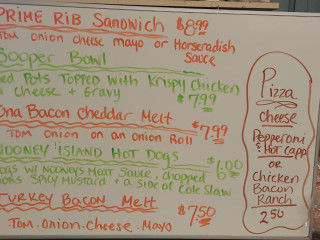 PRIME RIB SANDWICH $8.99
TOM ONION CHEESE MAYO OR Horseradish
Sauce
SOOPER BOWL
ED POTS TOPPED WITH KRISPY CHICKEN
CHEESE + GRAVY $7.99
UNA BACON CHEDDAR MELT
TOM ONION ON AN ONION ROLL $7.99
OONEY ISLAND HOT DOGS
OGS W/ NOONEYS MEAT SAUCE, CHOPPED $6.00
IONS SPICY MUSTARD + A SIDE OF COLE SLAW
TURKEY BACON MELT
. TOM. ONION. CHEESE. MAYO $7.50
Pizza
Cheese
Pepperoni
& Hot Capp
OR
Chicken
Bacon
Ranch
2.50